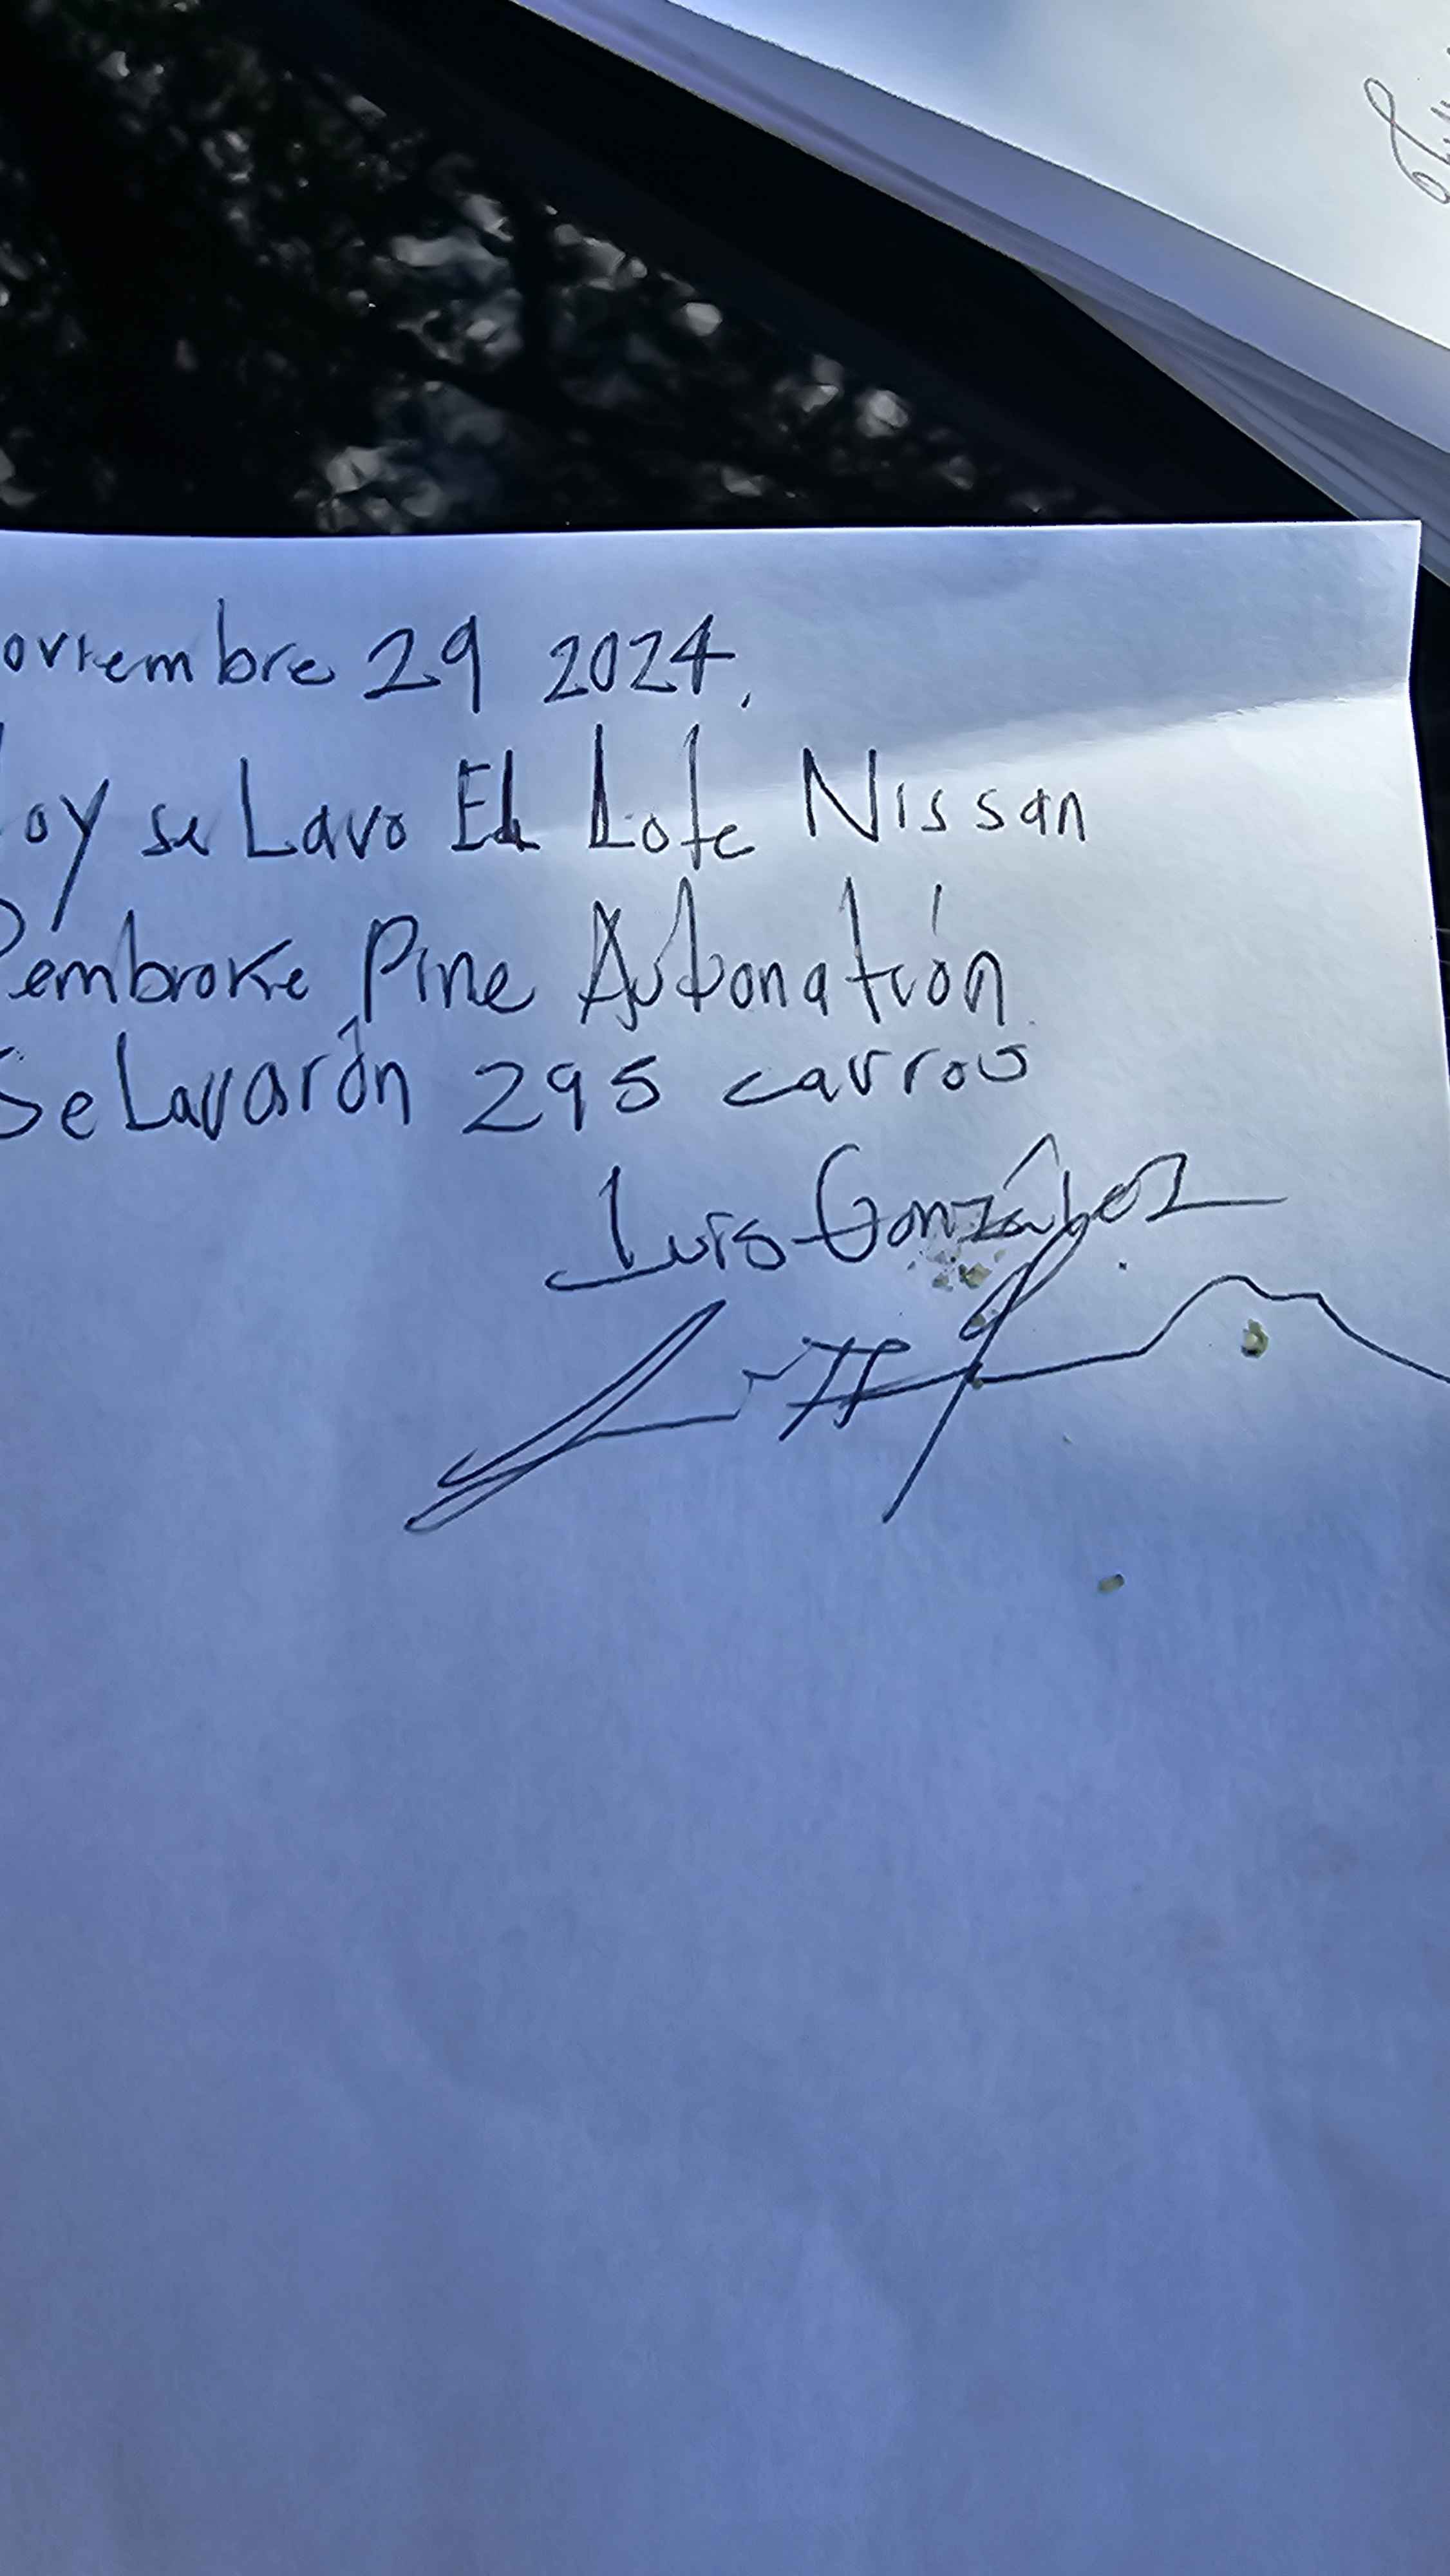 oviembre 29 2024,
Hoy se Lavo El Lote Nissan
Pembroke Pine Autonatión
Se Lavarón 295 carros
Luis González